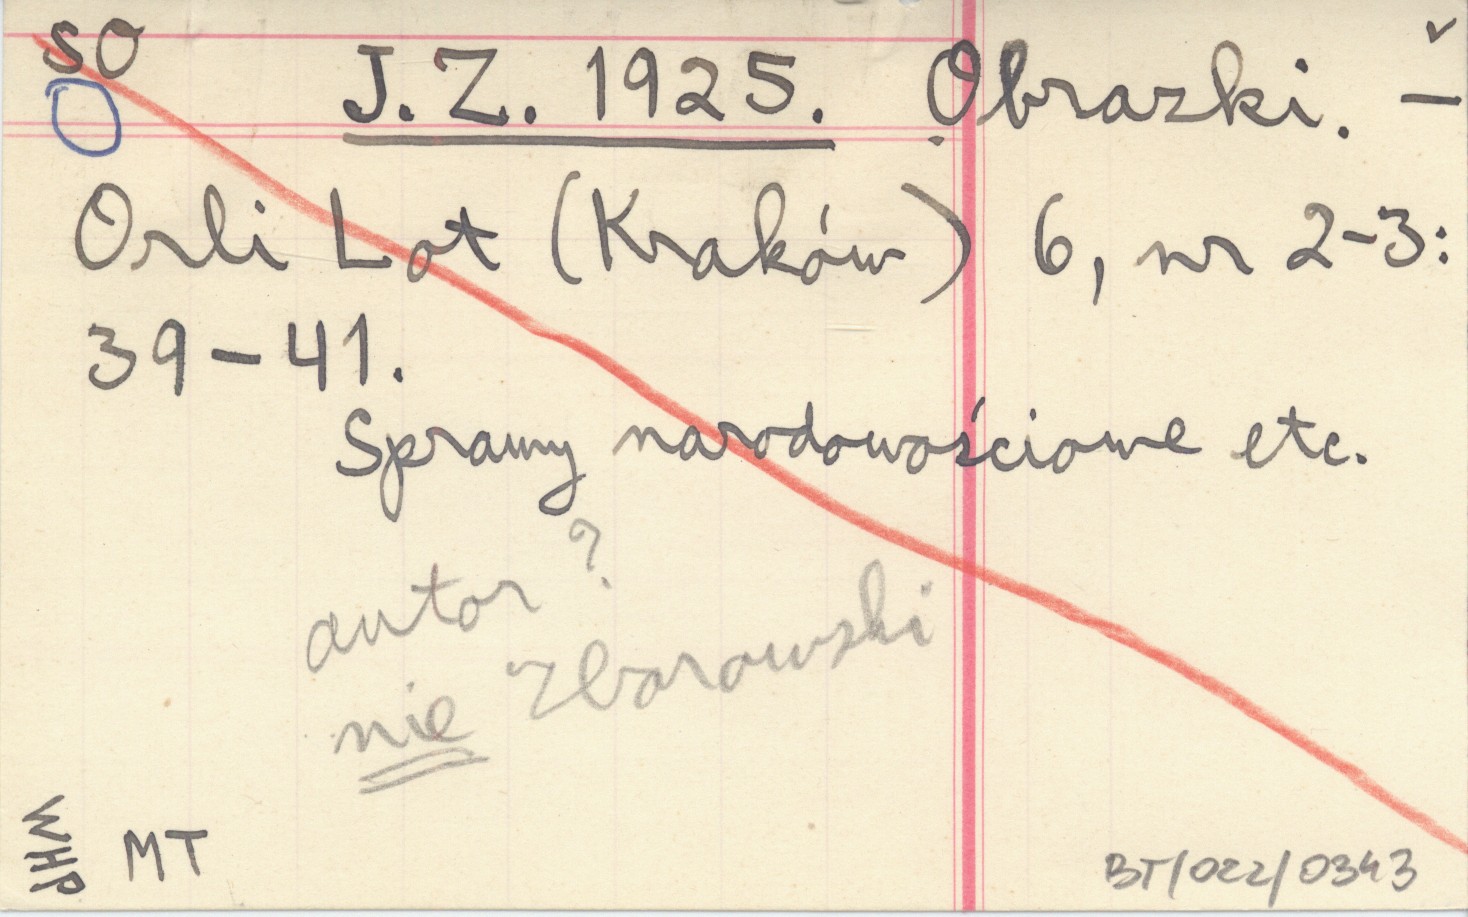 SO
J. Z. 1925. Obrazki. –
Orli Lot (Kraków) 6, nr 2-3:
39-41.
Sprawy narodowościowe etc.
autor?
nie Zborowski
WHP
MT
BT/022/0343